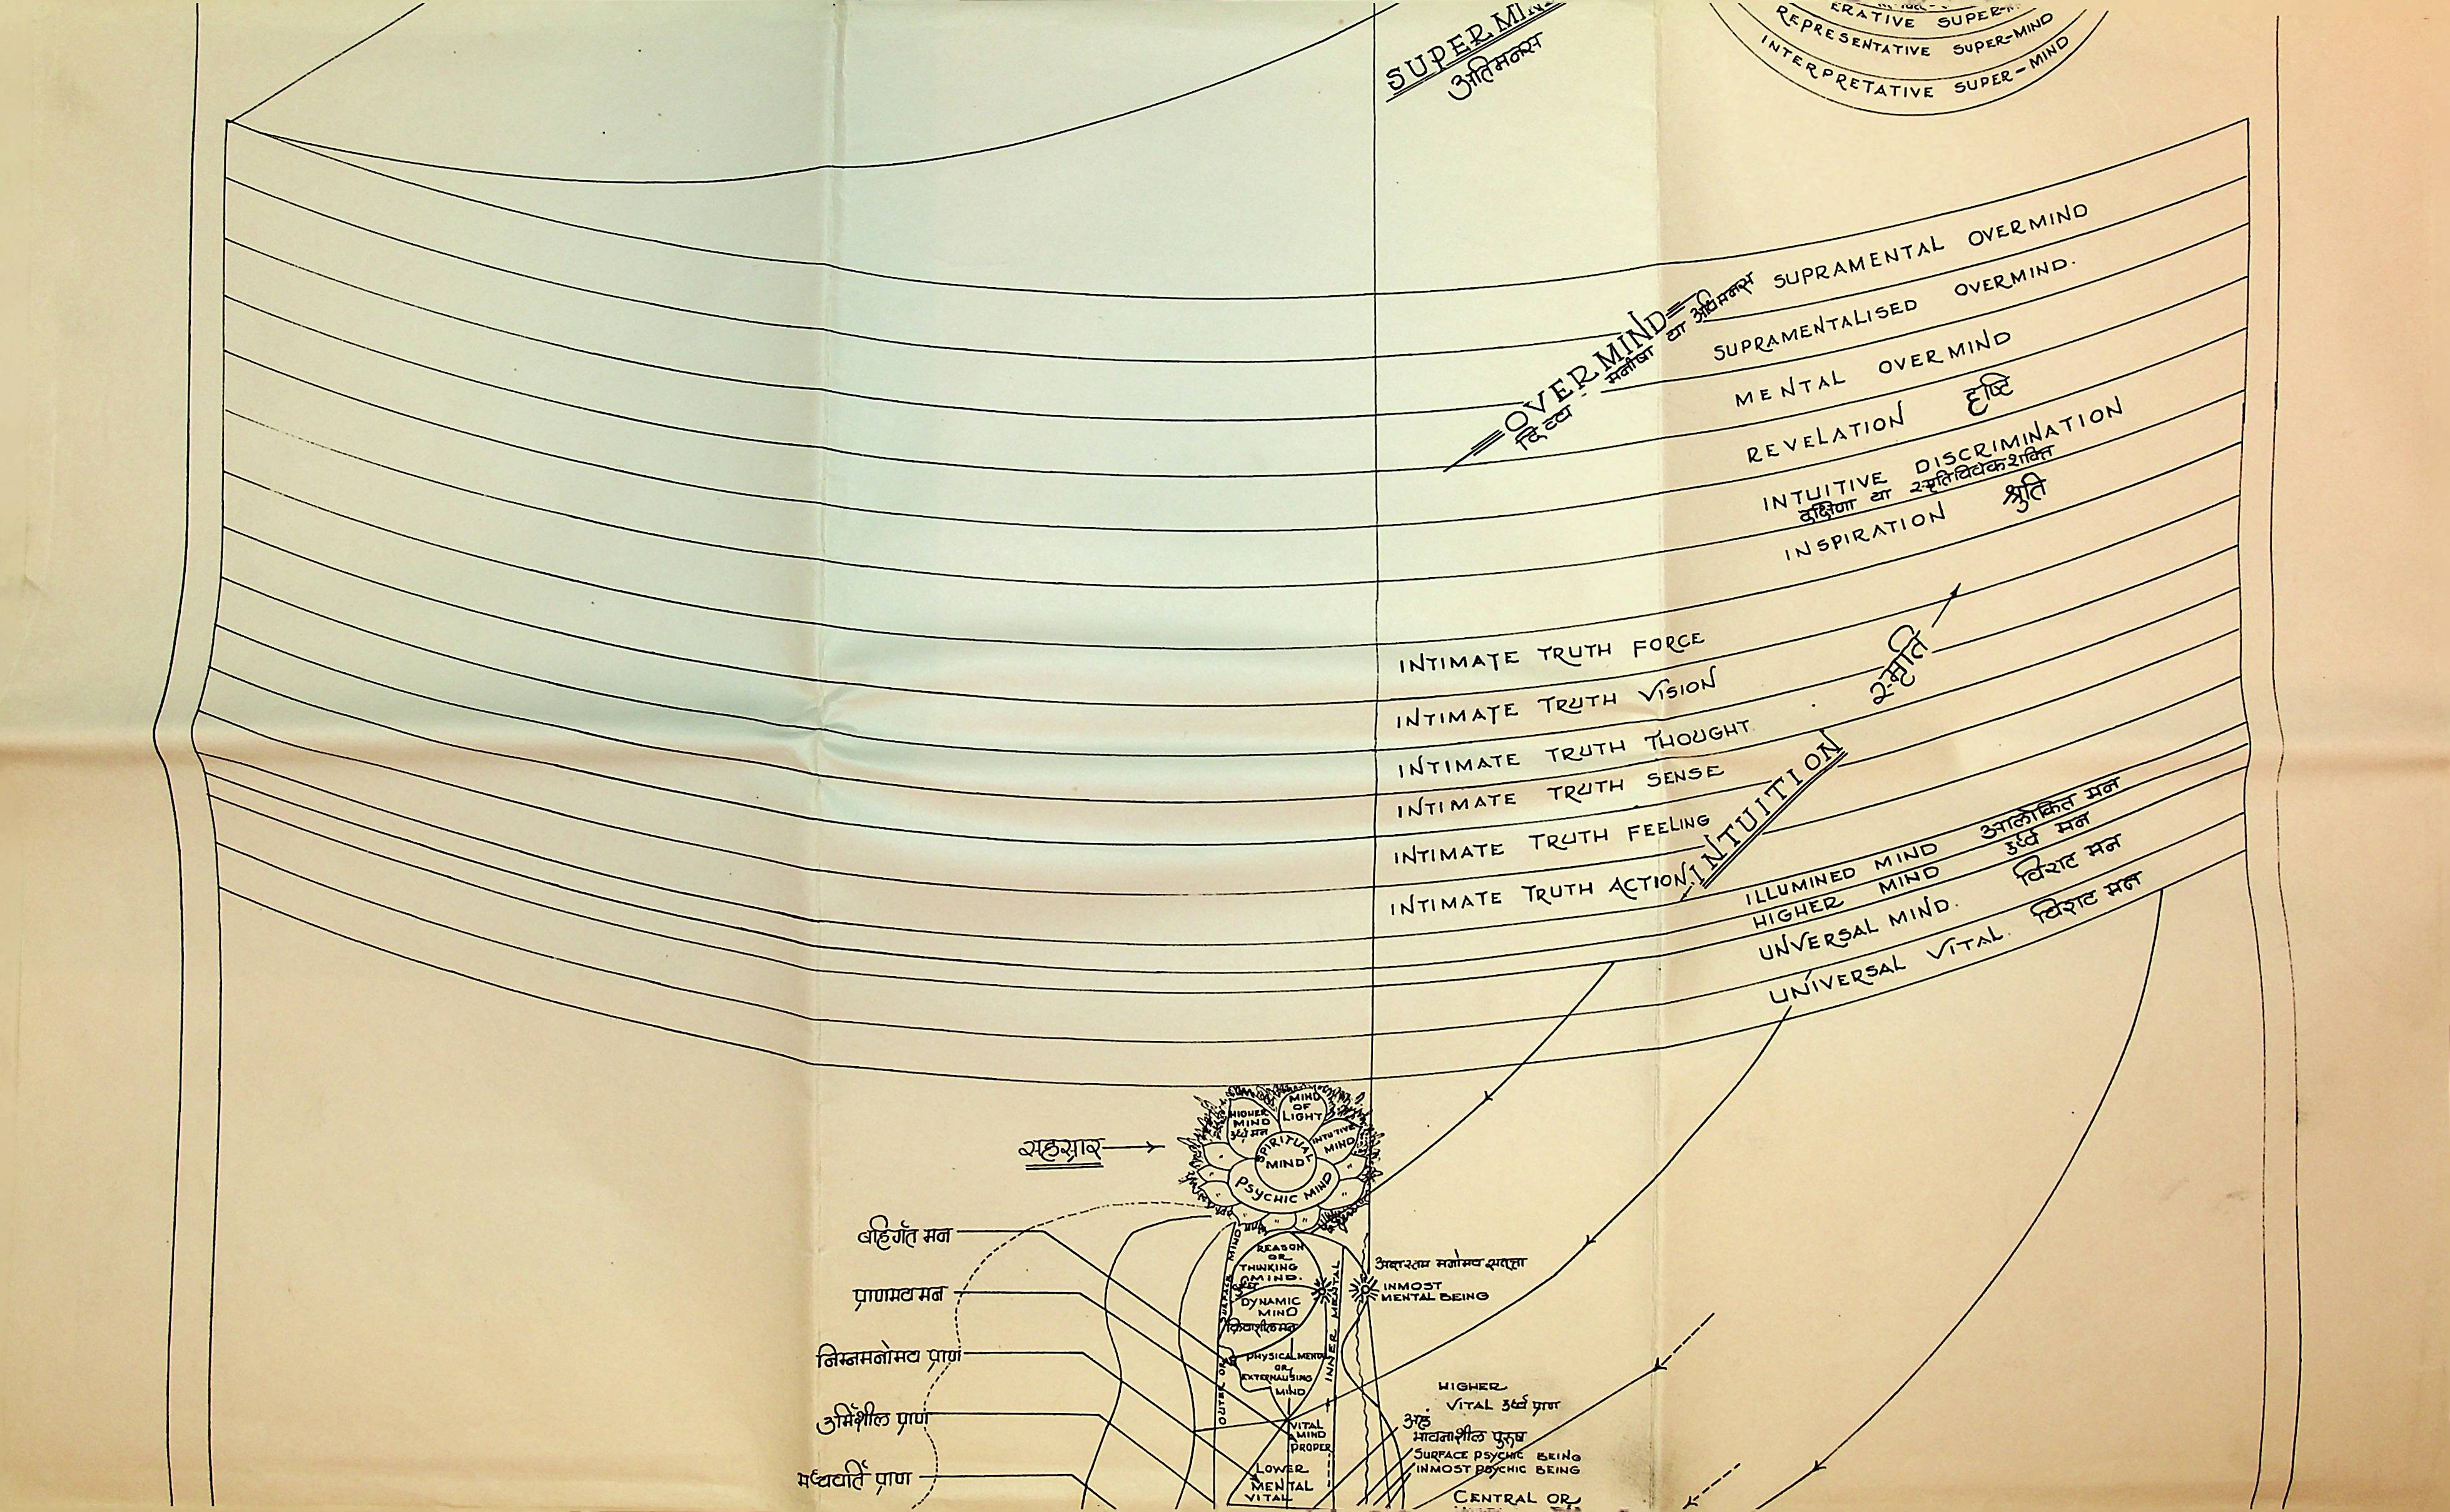 SUPERMIN
अतिमनस
ERATIVE SUPER-
REPRESENTATIVE SUPER-MIND
INTERPRETATIVE SUPER-MIND
OVERMIND
दिव्य मनीषा या अधिमनस
SUPRAMENTAL OVERMIND
SUPRAMENTALISED OVERMIND.
MENTAL OVERMIND
REVELATION दृष्टि
INTUITIVE DISCRIMINATION
दक्षिणा या स्मृतिविवेकशक्ति
INSPIRATION श्रुति
INTIMATE TRUTH FORCE
INTIMATE TRUTH VISION
INTIMATE TRUTH THOUGHT
INTIMATE TRUTH SENSE
INTIMATE TRUTH FEELING
INTIMATE TRUTH ACTION
INTUITION
स्मृति
ILLUMINED MIND आलोकित मन
HIGHER MIND उर्ध्व मन
UNVERSAL MIND. विराट मन
UNIVERSAL VITAL. विराट मन
सहस्रार
HIGHER
MIND
उर्ध्व मन
MIND
OF
LIGHT
INTUTIVE
MIND
SPIRITUAL
MIND
PSYCHIC MIND
बहिर्गत मन
प्राणमय मन
निम्नमनोमय प्राण
उर्मिशील प्राण
मध्यवर्ति प्राण
OUTER OR SURFACE MIND
REASON
OR
THINKING
MIND.
DYNAMIC
MIND
क्रियाशीलमन
PHYSICAL MEND
OR
EXTERNALISING
MIND
VITAL
MIND
PROPER
LOWER
MENTAL
VITAL
INNER MENTAL
INMOST
MENTAL BEING
HIGHER
VITAL उर्ध्व प्राण
अहं
भावनाशील पुरुष
SURFACE PSYCHIC BEING
INMOST PSYCHIC BEING
CENTRAL OR